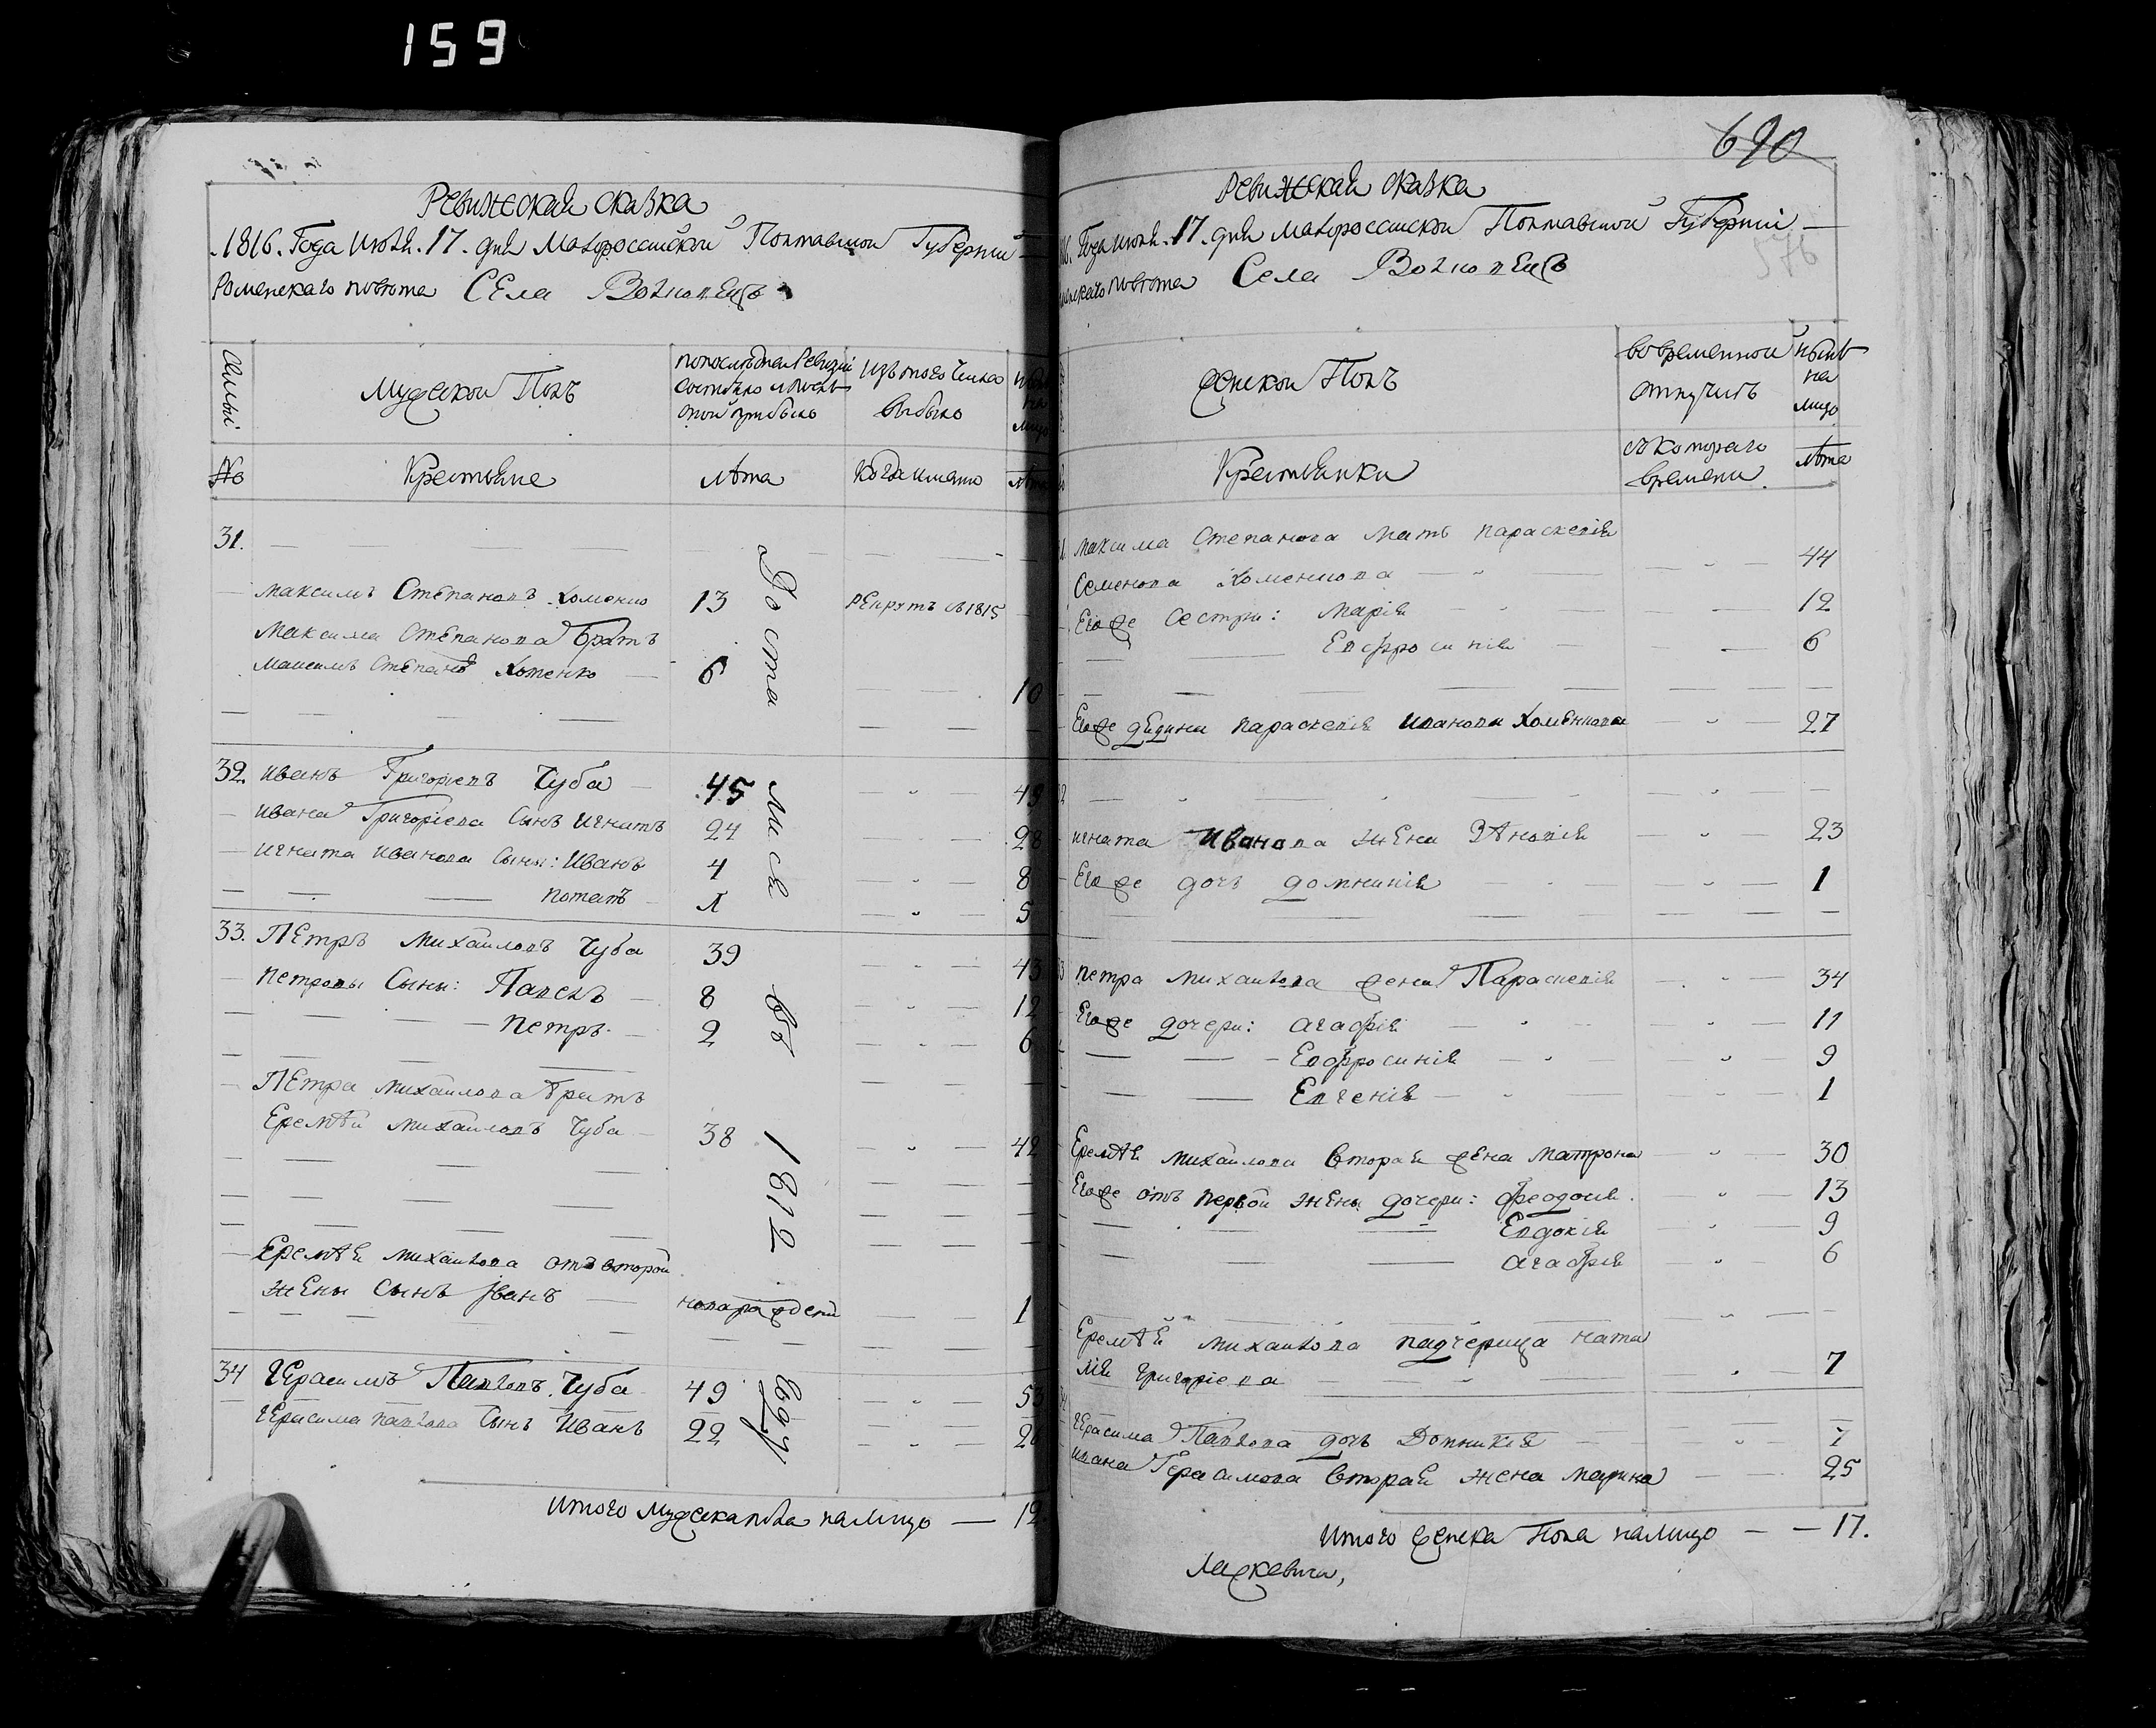 159
Ревижская сказка
.1816. Года июля .17. дня Малороссийской Полтавской Губернии
Роменского повета Села Волковец
Семьи
Мужеской Полъ
по последней Ревизии состояло и после оной прибыло
Изъ того числа выбыло
ныне на лицо
№
Крестьяне
лета
когда именно
лета
31.
Максимъ Степановъ Хоменко 13 рекрутъ в 1815
Максима Степанова братъ
Максимъ Степановъ Хоменко 6 10
Достался въ 1812 году
32. Иванъ Григориевъ Чуба 45 49
Ивана Григориева Сынъ Игнатъ 24 28
Игната Иванова Сыны: Иванъ 4 8
Потапъ 1 5
33. Петръ Михайловъ Чуба 39 43
Петровы Сыны: Павелъ 8 12
Петръ 2 6
Петра Михайлова братъ
Еремей Михайловъ Чуба 38 42
Еремея Михайлова отъ второй
жены Сынъ Иванъ новорожденъ 1
34 Герасимъ Павловъ Чуба 49 53
Герасима Павлова Сынъ Иванъ 22 26
Итого мужеска пола налицо — 12
690
576
Ревижская сказка
Года июля .17. дня Малороссийской Полтавской Губернии
повета Села Волковец
Женской Полъ
во временной отлучке
ныне на лицо
Крестьянки
съ которого времени
лета
Максима Степанова мать Параскевия
Семенова Хоменкова 44
Егоже сестры: Мария 12
Евфросиния 6
Егоже дядина Параскевия Иванова Хоменкова 27
Игната Иванова жена Зѣновия 23
Егоже дочь Домникия 1
Петра Михайлова жена Параскевия 34
Егоже дочери: Агафия 11
Евфросиния 9
Евгения 1
Еремея Михайлова вторая жена Матрона 30
Егоже отъ первой жены дочери: Феодосия 13
Евдокия 9
Агафия 6
Еремея Михайлова падчерица Ната
лия Григориева 7
Герасима Павлова дочь Домникия 7
Ивана Герасимова вторая жена Марина 25
Итого женска пола налицо — — 17.